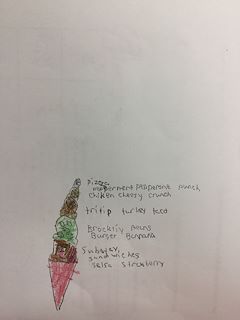 Pizza
pepperment pepperoni punch
chiken cheesy crunch
tritip turkey taco
Brockliy Beens
Burger Banana
Subway
sandwiches
salsa strawberry